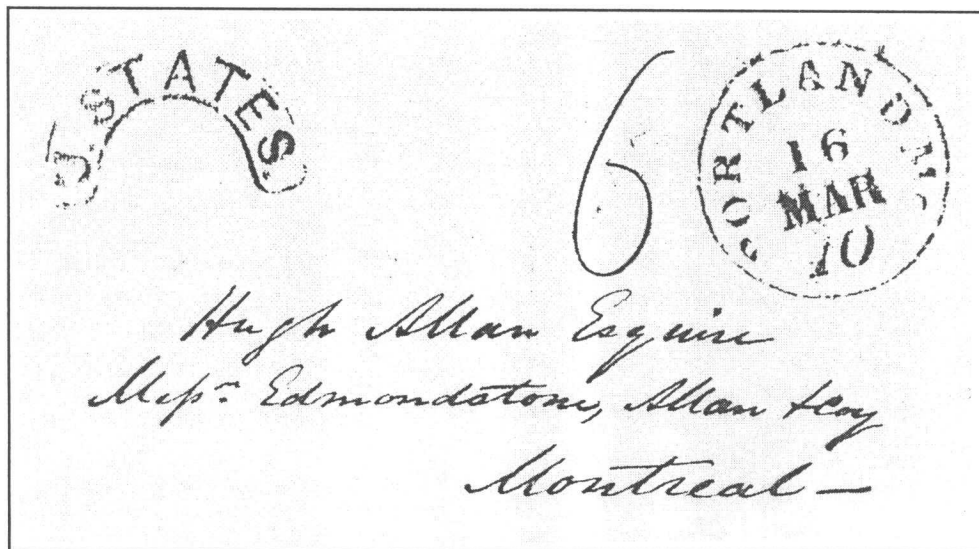 U. STATES.
6
PORTLAND Me.
16
MAR
10
Hugh Allan Esquire
Messrs. Edmondstone, Allan & Coy
Montreal —